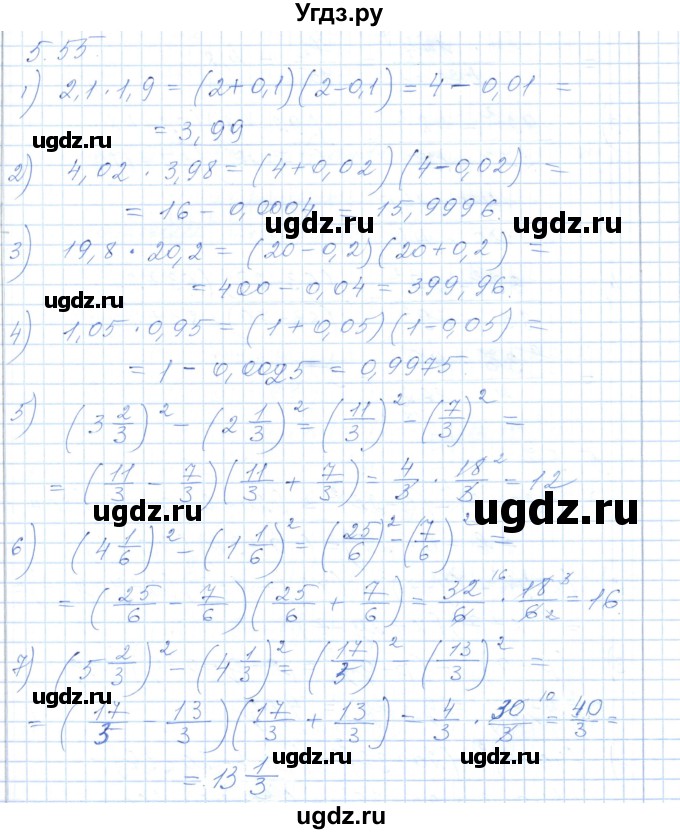 Угдз.ру
5.55.
1) 2,1·1,9 = (2+0,1)(2-0,1) = 4 - 0,01 =
ugdz.ru
= 3,99
2) 4,02 · 3,98 = (4+0,02)(4-0,02) =
ugdz.ru
= 16 - 0,0004 = 15,9996.
ugdz.ru
ugdz.ru
3) 19,8 · 20,2 = (20-0,2)(20+0,2) =
ugdz.ru
= 400 - 0,04 = 399,96.
4) 1,05 · 0,95 = (1+0,05)(1-0,05) =
= 1 - 0,0025 = 0,9975.
5) (3 2/3)² - (2 1/3)² = (11/3)² - (7/3)² =
= (11/3 - 7/3)(11/3 + 7/3) = 4/3 · 18²/3 = 12
ugdz.ru
ugdz.ru
6) (4 1/6)² - (1 1/6)² = (25/6)² - (7/6)² =
= (25/6 - 7/6)(25/6 + 7/6) = 32¹⁶/6 · 18³/6₂ = 16
ugdz.ru
7) (5 2/3)² - (4 1/3)² = (17/3)² - (13/3)² =
= (17/3 - 13/3)(17/3 + 13/3) = 4/3 · 30¹⁰/3 = 40/3 =
ugdz.ru
ugdz.ru
= 13 1/3
ugdz.ru